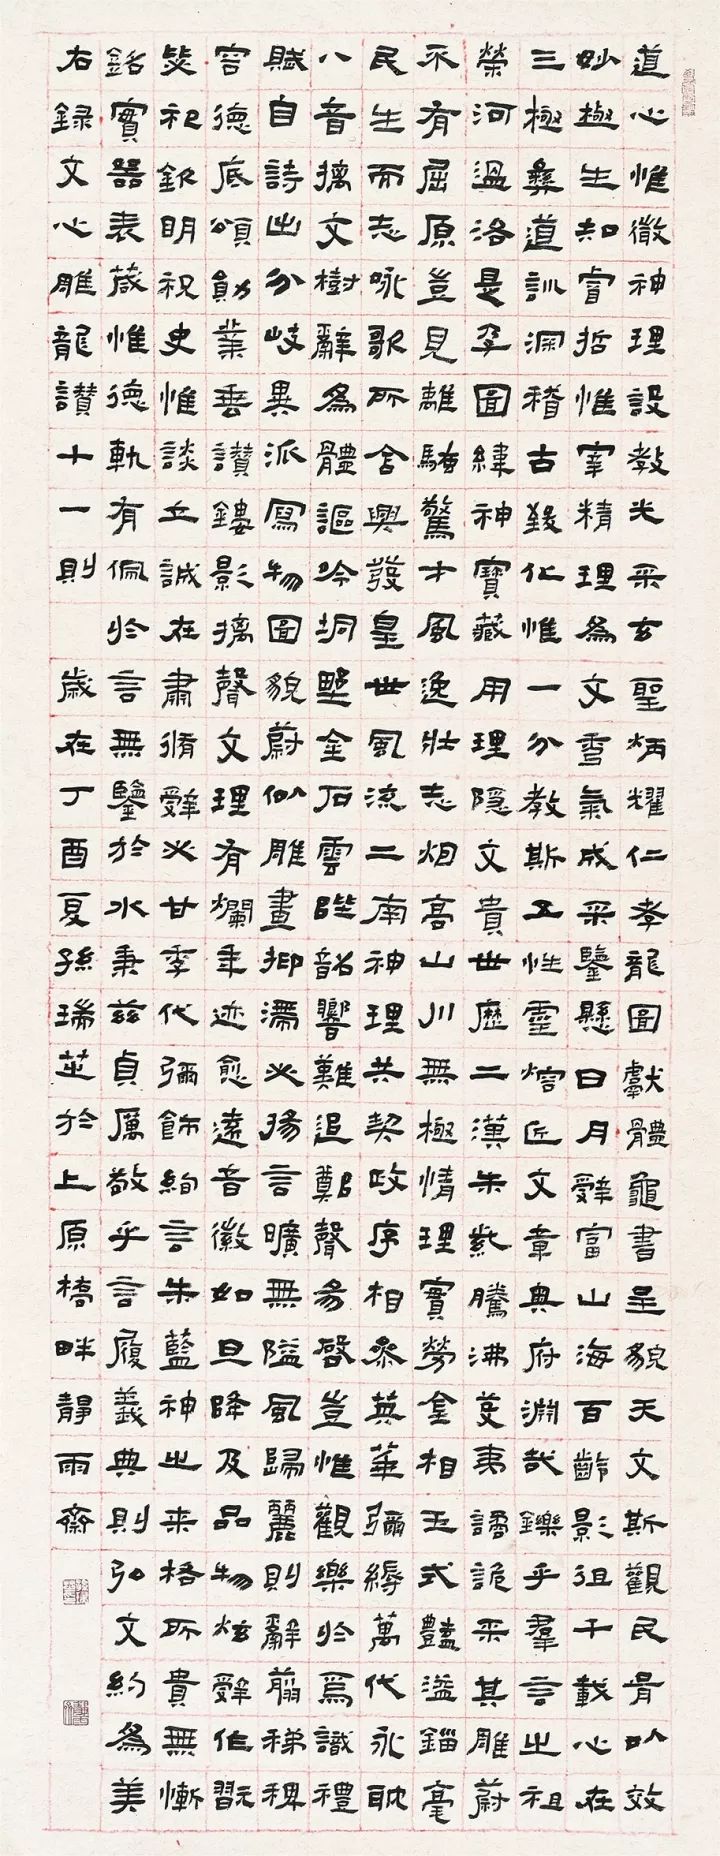 道心惟微神理設教光采玄聖炳耀仁孝龍圖獻體龜書呈貌天文斯觀民胥以效
妙極生知睿哲惟宰精理為文秀氣成采鑒懸日月辭富山海百齡影徂千載心在
三極彝道訓深稽古致化惟一分教斯五性靈熔匠文章奧府淵哉鑠乎羣言之祖
榮河溫洛是孕圖緯神寶藏用理隱文貴世歷二漢朱紫騰沸芟夷譎詭采其雕蔚
不有屈原豈見離騷驚才風逸壯志烟高山川無極情理實勞金相玉式豔溢錙毫
民生而志咏歌所含興發皇世風流二南神理共契政序相參英華彌縟萬代永耽
八音摛文樹辭為體謳吟坰野金石雲陛韶響難追鄭聲易啓豈惟觀樂於焉識禮
賦自詩出分岐異派寫物圖貌蔚似雕畫抑滯必揚言曠無隘風歸麗則辭翦稊稗
容德底頌勛業垂讚鏤影摛聲文理有爛年迹愈遠音徽如旦降及品物炫辭作翫
毖祀欽明祝史惟談立誠在肅脩辭必甘季代彌飾絢言朱藍神之来格所貴無慚
銘實器表箴惟德軌有佩於言無鑒於水秉茲貞厲敬乎言履義典則弘文約為美
右録文心雕龍讚十一則 歲在丁酉夏孫瑞芷於上原橋畔靜雨齋